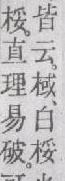 皆云。棫、白桵
桵。直理易破。